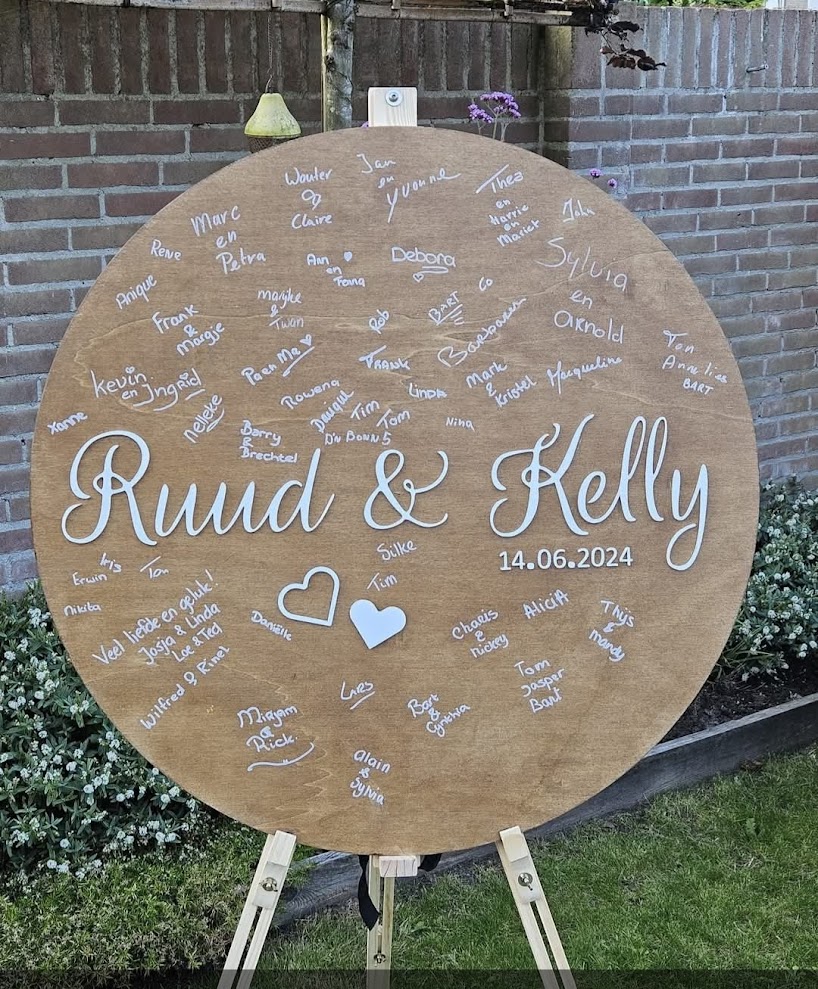 Jan
en
Yvonne
Wouter
&
Claire
Thea
en
Harrie
en
Mariet
Marc
en
Petra
Rene
Debora
Sylvia
en
Arnold
Anique
Ann
en
Marijke
&
Twan
Frank
&
Margje
Rob
BART
Co
Barbara
Ton
Annelies
BART
Pa en Ma
FRANK
Kevin
en Ingrid
Rowena
Linda
Mark
&
Kristel
Macqueline
Nelleke
Xanne
Tim
Tom
Nina
Barry
&
Brechtel
Ruud & Kelly
14.06.2024
Silke
Tim
Iris
Erwin
Ton
Nikita
Veel liefde en geluk!
Josja & Linda
Loe & Ted
Wilfred & Rinel
Daniëlle
Charis
&
Nickey
Alicia
Thijs
&
Mandy
Tom
Jasper
Bart
Lies
Bart
&
Cynthia
Mirjam
&
Rick.
Alain
&
Sylvia